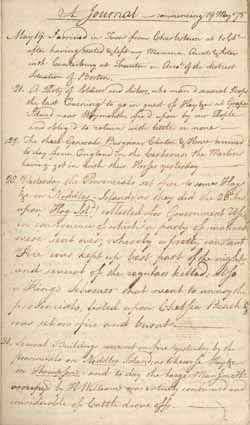 A Journal commencing 19 May 75
May 19. I arrived in Town from Charlestown at 10 oClo
after having seated & left my Mamma Aunts & sister
with Canterbury at Taunton in Acct. of the distress'd
situation of Boston.
21. A Party of Soldiers and sailors, who man'd several Sloops
the last Evening to go in quest of Hay &c at Grape
Island near Weymouth, fir'd upon by our People
and oblig'd to return with little or none
25. The three Generals Burgoyne Clinton & Howe arrived
to day from England in the Cerberus Man of War
having got in both their Horses yesterday
28. Yesterday the Provincials set fire to some Hay
&c on Noddles Island, as they did the
upon Hog Isld. collected for Government Use
in consequence of which a party of marines
were sent over, whereby a pretty constant
Fire was kept up best part of the night
and several of the regulars killed. Also
a King's Schooner that went to annoy the
provincials, lasted upon Chelsea Beach &
was set on fire and burnt.
Several Buildings were set on fire yesterday by the
provincials on Noddles Island, as likewise Hay &c
on Thompsons and to day the large Mansion
occupied by H. Williams was entirely consumed and
considerable of Cattle drove off.